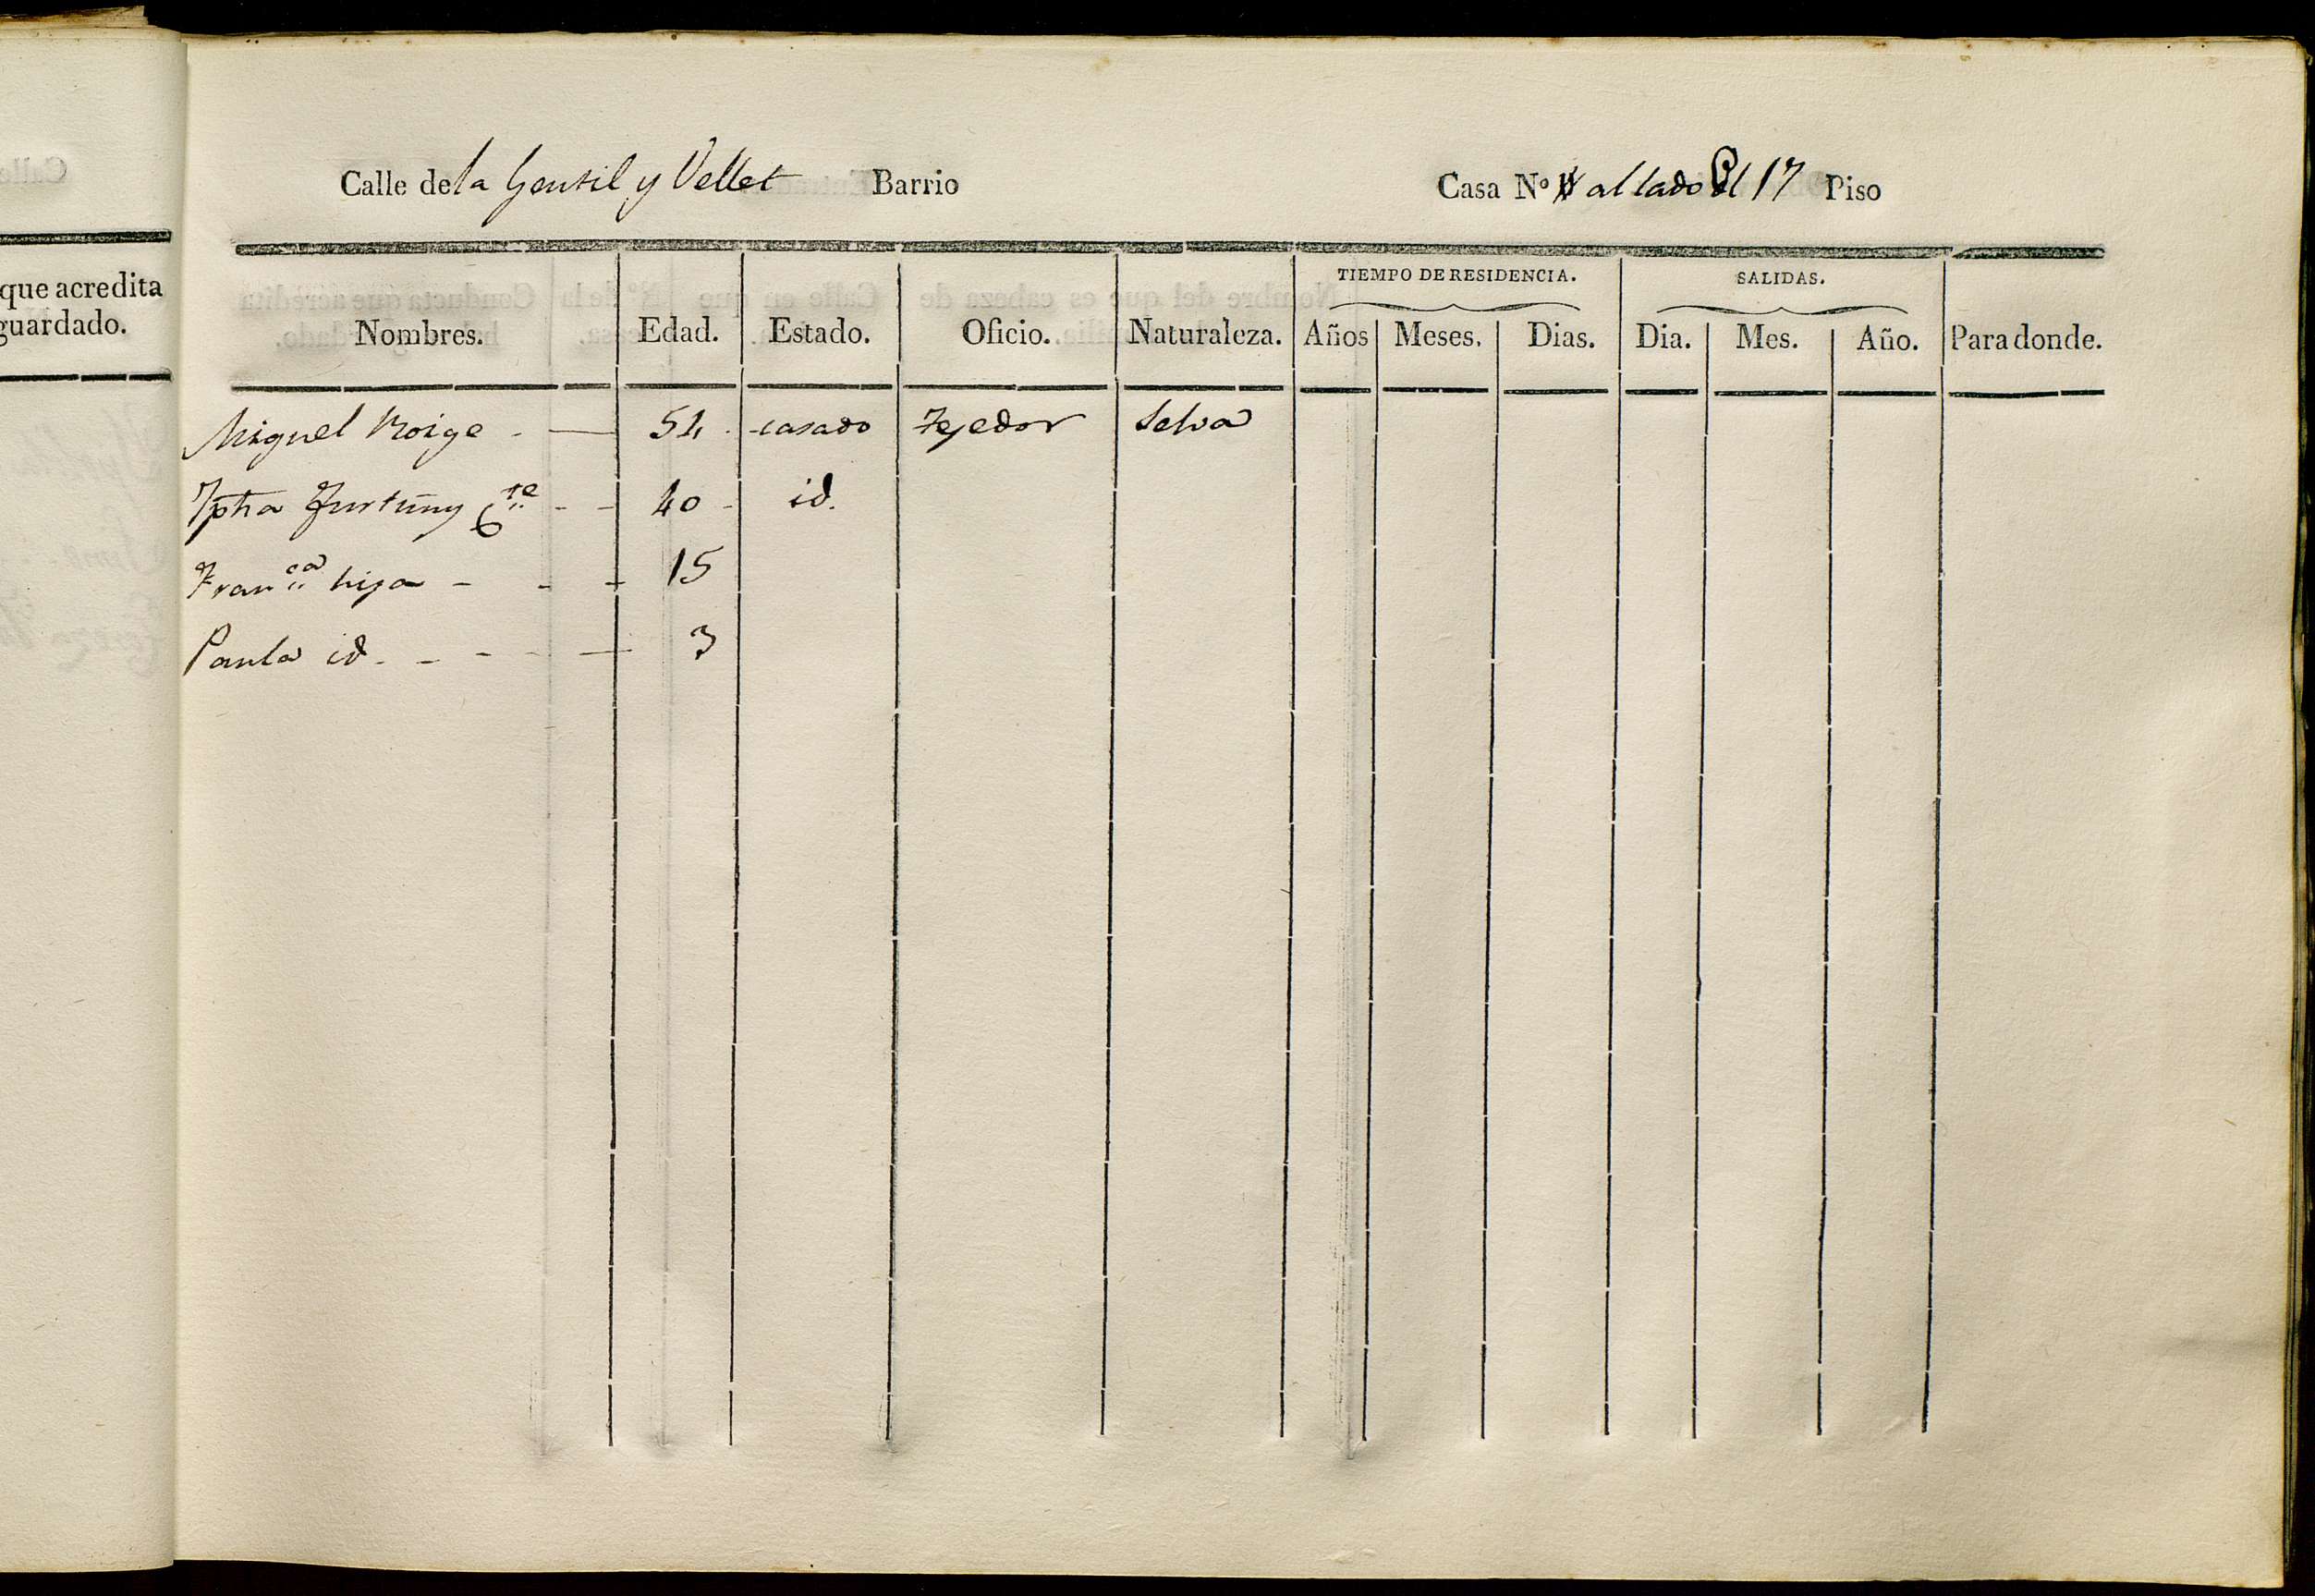 Calle de la Gentil y Vellet Barrio Casa Nº al lado del 17 Piso
que acredita
guardado.
TIEMPO DE RESIDENCIA. SALIDAS.
Nombres. Edad. Estado. Oficio. Naturaleza. Años Meses. Dias. Dia. Mes. Año. Para donde.
Miguel Roige - — 54 - casado Tejedor Selva
Furtuny - - 40 - id.
Fran.ca hija - - - 15
Paula id. - - - — 3